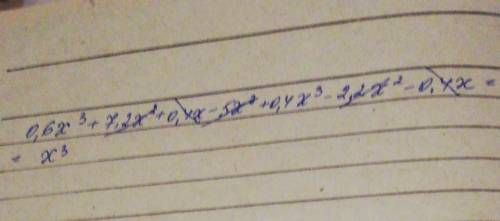 0,6x³ + 7,2x² + 0,4x - 5x² + 0,4x³ - 2,2x² - 0,4x =
= x³